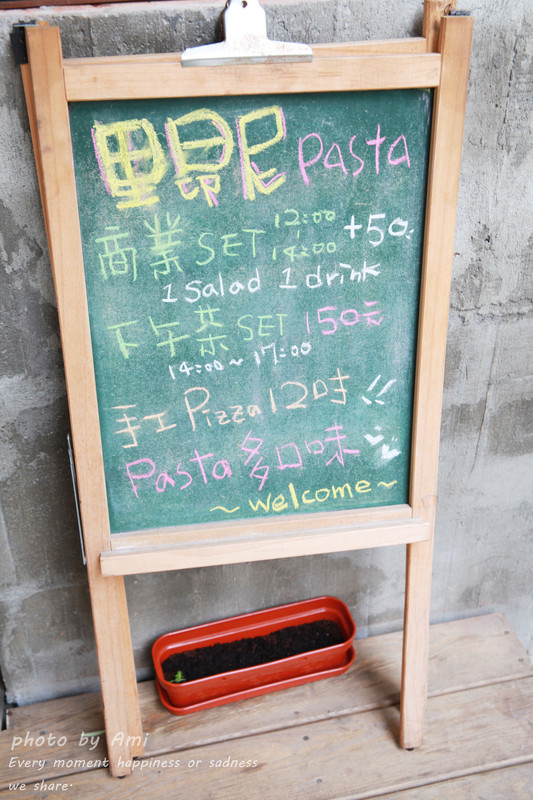 里昂尼 Pasta
商業 SET 12:00 14:00 +50.
1 Salad 1 drink
下午茶 SET 150元
14:00~17:00
手工 Pizza 12吋 !!
Pasta 多口味
~ welcome ~
photo by Ami
Every moment happiness or sadness
we share.